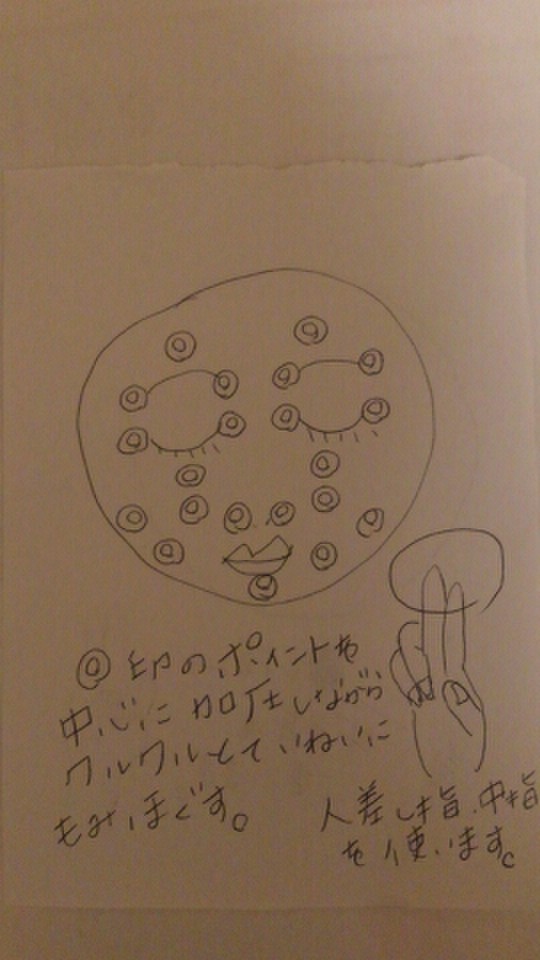 ◎印のポイントを
中心に加圧しながら
クルクルとていねいに
もみほぐす。
人差し指、中指
を使います。